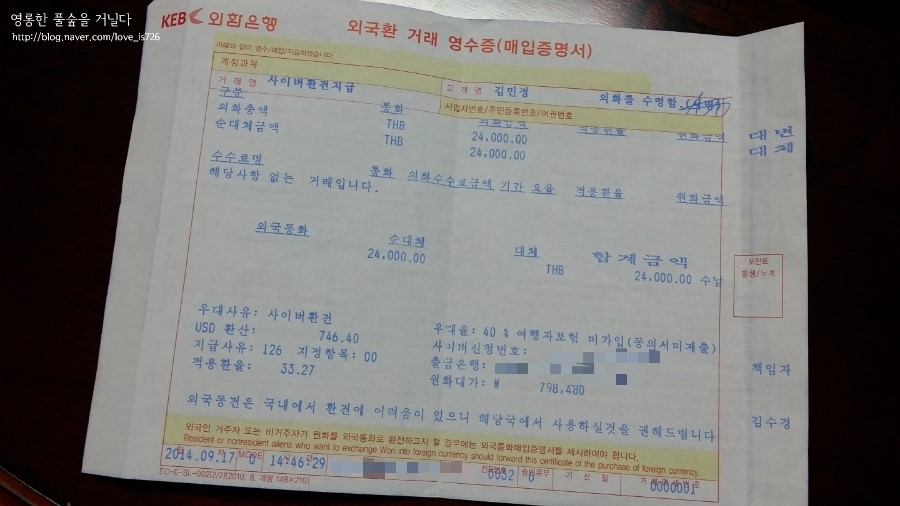 영롱한 풀숲을 거닐다
http://blog.naver.com/love_is726
KEB 외환은행
외국환 거래 영수증(매입증명서)
아래와 같이 영수/매입/지급하였습니다.
계정과목
거래명 사이버환전지급 고객명 김민정 외화를 수령함.
사업자번호/주민등록번호/여권번호
구분 통화 외화금액 적용환율 원화금액
외화총액 THB 24,000.00 대변
순대체금액 THB 24,000.00 대체
수수료명 통화 외화수수료금액 기간 요율 적용환율 원화금액
해당사항 없는 거래입니다.
외국통화 순대체 대체 합계금액
24,000.00 THB 24,000.00 수납
포인트
발생/누계
우대사유: 사이버환전 우대율: 40 % 여행자보험 미가입(동의서미제출)
USD 환산: 746.40 사이버신청번호:
지급사유: 126 지정항목: 00 출금은행:
적용환율: 33.27 원화대가: ₩ 798,480
책임자
외국동전은 국내에서 환전에 어려움이 있으니 해당국에서 사용하실것을 권해드립니다
김수경
외국인 거주자 또는 비거주자가 원화를 외국통화로 환전하고자 할 경우에는 외국통화매입증명서를 제시하여야 합니다.
Resident or nonresident aliens who want to exchange Won into foreign currency should forward this certificate of the purchase of foreign currency.
2014.09.17 MODE 0 14:46:29 전표번호 0052 승인욕무 0 기산일 거래영생번호 0000001
EC-E-SL-002(2/2)(2010. 8. 개정 148×210)